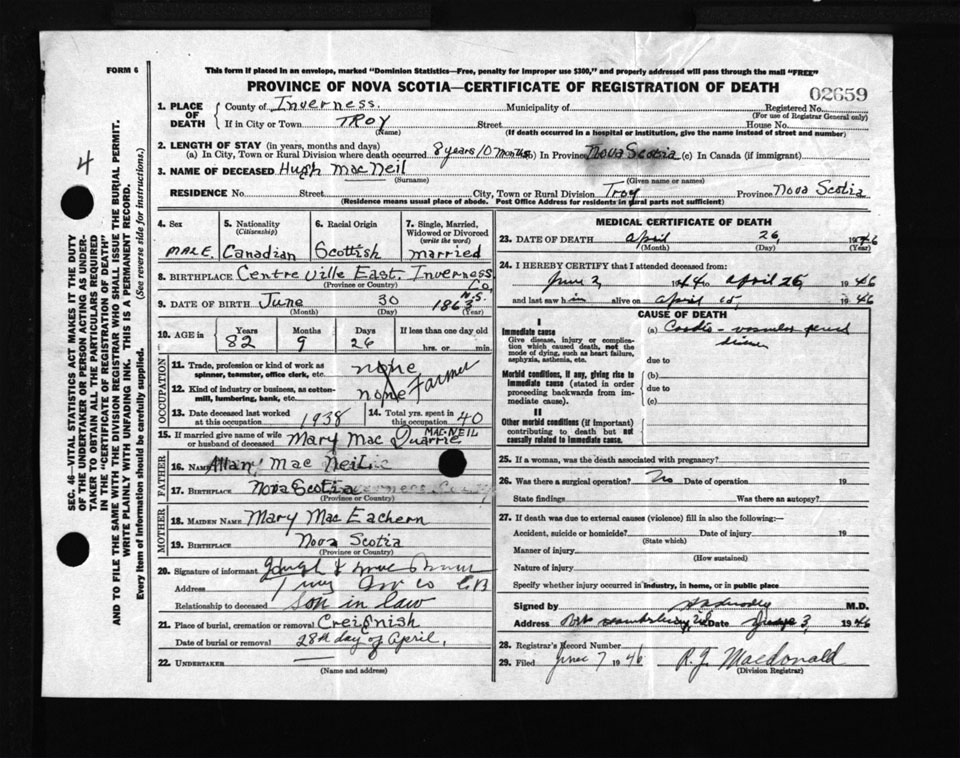 FORM 6
This form if placed in an envelope, marked "Dominion Statistics—Free, penalty for improper use $300," and properly addressed will pass through the mail "FREE"
PROVINCE OF NOVA SCOTIA—CERTIFICATE OF REGISTRATION OF DEATH
02659
1. PLACE OF DEATH County of Inverness. Municipality of Registered No.
(For use of Registrar General only)
If in City or Town TROY Street House No.
(Name) (If death occurred in a hospital or institution, give the name instead of street and number)
2. LENGTH OF STAY (in years, months and days)
(a) In City, Town or Rural Division where death occurred 8 years 10 months (b) In Province Nova Scotia (c) In Canada (if immigrant)
3. NAME OF DECEASED Hugh Mac Neil
(Surname) (Given name or names)
RESIDENCE No. Street City, Town or Rural Division Troy Province Nova Scotia
(Residence means usual place of abode. Post Office Address for residents in rural parts not sufficient)
4. Sex 5. Nationality (Citizenship) 6. Racial Origin 7. Single, Married, Widowed or Divorced (write the word)
MALE Canadian Scottish married
8. BIRTHPLACE Centreville East. Inverness Co. N.S.
(Province or Country)
9. DATE OF BIRTH June 30 1863
(Month) (Day) (Year)
10. AGE is Years Months Days If less than one day old
82 9 26 hrs. or min.
OCCUPATION
11. Trade, profession or kind of work as spinner, teamster, office clerk, etc. none
12. Kind of industry or business, as cotton-mill, lumbering, bank, etc. none Farmer
13. Date deceased last worked at this occupation 1938 14. Total yrs. spent in this occupation 40
15. If married give name of wife or husband of deceased Mary Mac Quarrie MACNEIL
FATHER
16. NAME Allan Mac Neil
17. BIRTHPLACE Nova Scotia
(Province or Country)
MOTHER
18. MAIDEN NAME Mary Mac Eachern
19. BIRTHPLACE Nova Scotia
(Province or Country)
20. Signature of informant
Address
Relationship to deceased Son in law
21. Place of burial, cremation or removal Creignish
Date of burial or removal 28th day of April,
22. UNDERTAKER
(Name and address)
MEDICAL CERTIFICATE OF DEATH
23. DATE OF DEATH April 26, 1946
(Month) (Day) (Year)
24. I HEREBY CERTIFY that I attended deceased from:
June 2, 1944 to April 26, 1946
and last saw him alive on April 15, 1946
CAUSE OF DEATH
I
Immediate cause (a) Cardio-vascular
Give disease, injury or complication which caused death, not the mode of dying, such as heart failure, asphyxia, asthenia, etc.
due to
Morbid conditions, if any, giving rise to immediate cause (stated in order proceeding backwards from immediate cause).
(b)
due to
(c)
II
Other morbid conditions (if important) contributing to death but not causally related to immediate cause.
25. If a woman, was the death associated with pregnancy?
26. Was there surgical operation? No Date of operation 19
State findings Was there an autopsy?
27. If death was due to external causes (violence) fill in also the following:—
Accident, suicide or homicide? Date of injury 19
(State which)
Manner of injury
(How sustained)
Nature of injury
Specify whether injury occurred in industry, in home, or in public place
Signed by M.D.
Address Port Hawkesbury Date June 3, 1946
28. Registrar's Record Number
29. Filed June 7 1946 R. J. Macdonald
(Division Registrar)
4
SEC. 46—VITAL STATISTICS ACT MAKES IT THE DUTY
OF THE UNDERTAKER OR PERSON ACTING AS UNDER-
TAKER TO OBTAIN ALL THE PARTICULARS REQUIRED
IN THE "CERTIFICATE OF REGISTRATION OF DEATH"
AND TO FILE THE SAME WITH THE DIVISION REGISTRAR WHO SHALL ISSUE THE BURIAL PERMIT.
WRITE PLAINLY WITH UNFADING INK. THIS IS A PERMANENT RECORD.
Every item of information should be carefully supplied. (See reverse side for instructions.)